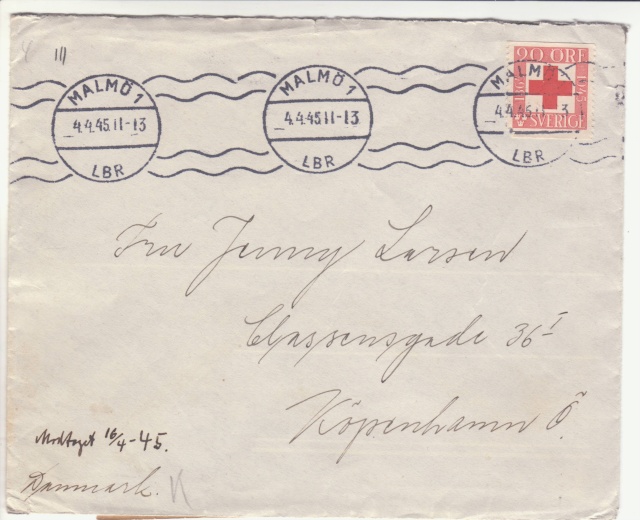 MALMÖ 1
4.4.45.11-13
LBR
MALMÖ 1
4.4.45 11-13
LBR
MALMÖ
4.4.45 11-13
LBR
20 ÖRE
SVERIGE
Fru Jenny Larsen
Classensgade 36 I
Köpenhamn Ö.
Modtaget 16/4-45.
Danmark.